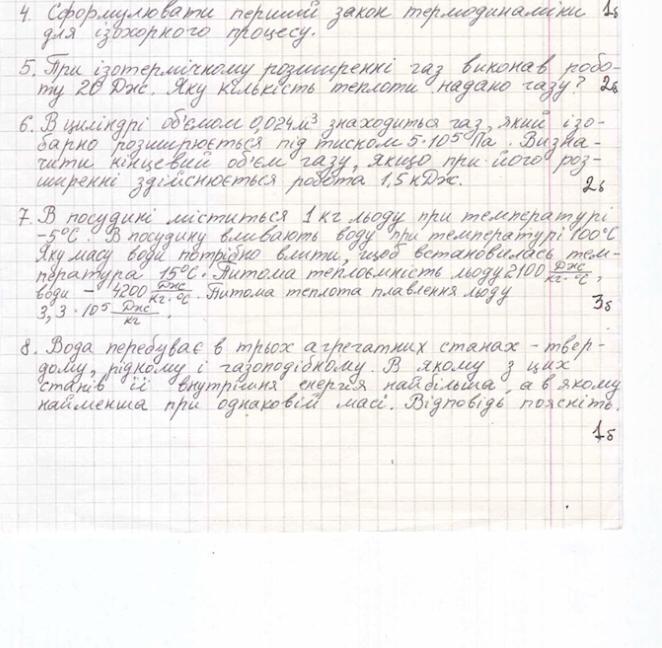 4. Сформулювати перший закон термодинаміки 1б
для ізохорного процесу.
5. При ізотермічному розширенні газ виконав робо-
ту 20 Дж. Яку кількість теплоти надано газу? 2б
6. В циліндрі об'ємом 0,024 м³ знаходиться газ, який ізо-
барно розширюється під тиском 5·10⁵ Па. Визна-
чити кінцевий об'єм газу, якщо при його роз-
ширенні здійснюється робота 1,5 кДж.
2б
7. В посудині міститься 1 кг льоду при температурі
-5°С. В посудину вливають воду при температурі 100°С
Яку масу води потрібно влити, щоб встановилась тем-
пература 15°С. Питома теплоємність льоду 2100 Дж/кг·°С,
води – 4200 Дж/кг·°С. Питома теплота плавлення льоду
3,3·10⁵ Дж/кг. 3б
8. Вода перебуває в трьох агрегатних станах - твер-
дому, рідкому і газоподібному. В якому з цих
станів її внутрішня енергія найбільша, а в якому
найменша при однаковій масі. Відповідь поясніть.
1б